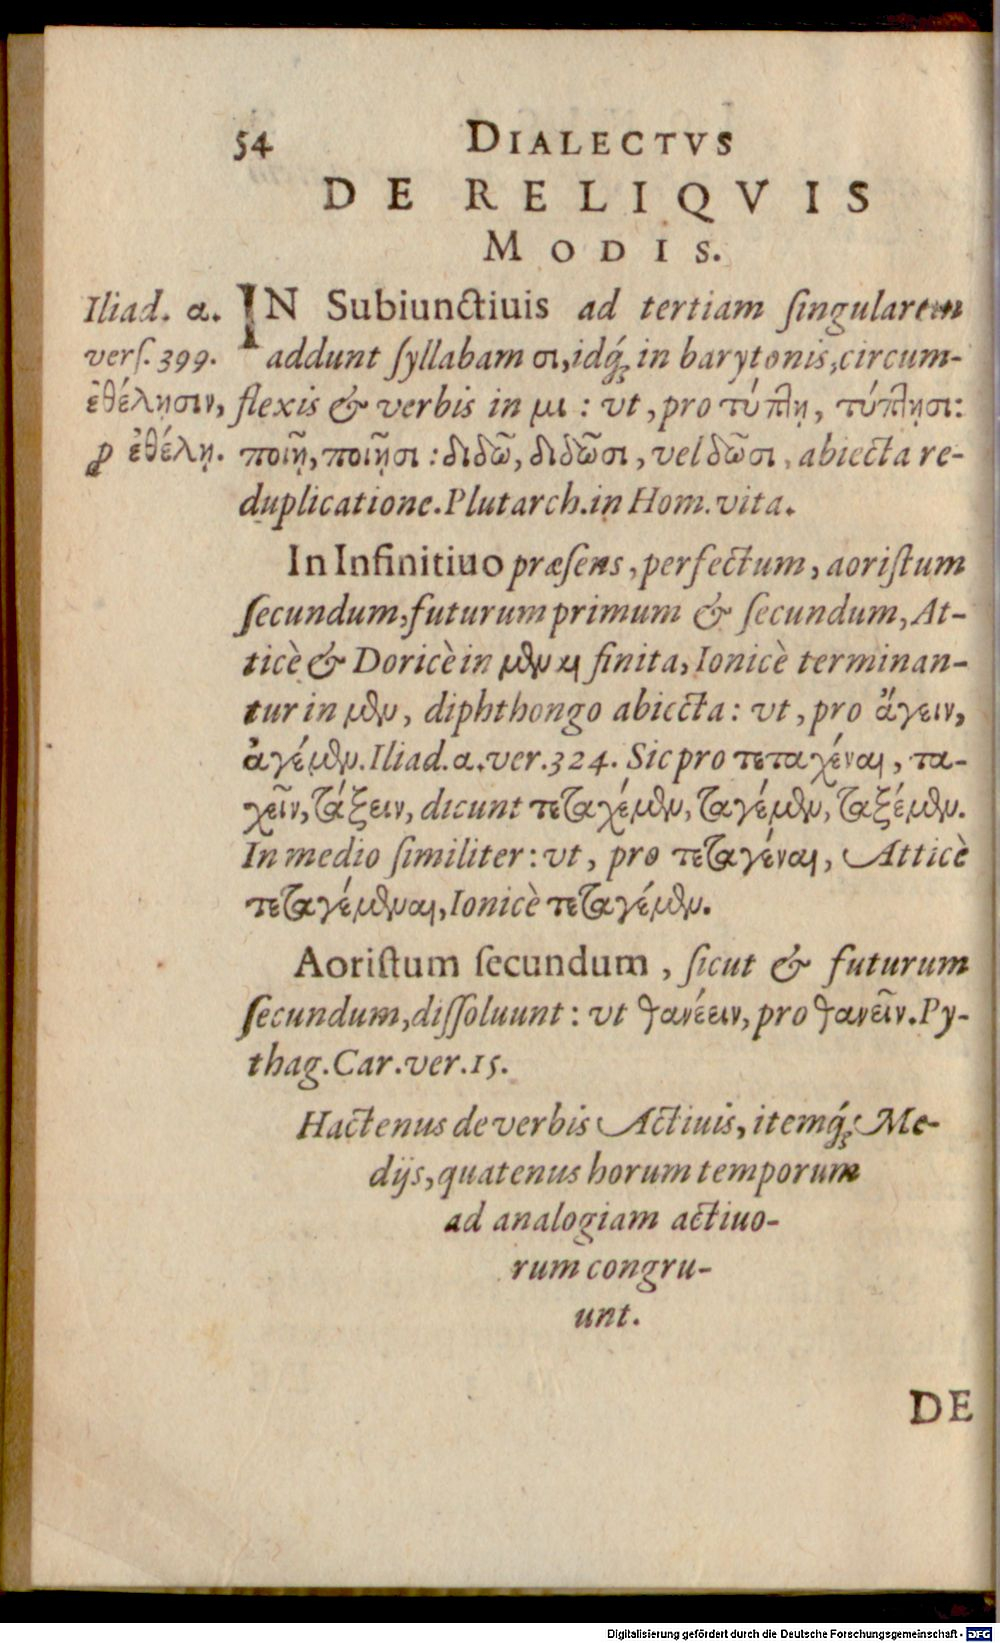 54 DIALECTVS
DE RELIQVIS
MODIS.
Iliad. α.
verſ. 399.
ἐθέλησιν,
ꝓ ἐθέλῃ.
IN Subiunctiuis ad tertiam ſingularem
addunt ſyllabam σι, idq́; in barytonis, circum-
flexis & verbis in μι: vt, pro τύπτῃ, τύπτῃσι:
ποιῇ, ποιῇσι: διδῶ, διδῶσι, vel δῶσι, abiecta re-
duplicatione. Plutarch. in Hom. vita.
In Infinitiuo præſens, perfectum, aoriſtum
ſecundum, futurum primum & ſecundum, At-
ticè & Doricè in μεν κ finita, Ionicè terminan-
tur in μεν, diphthongo abiecta: vt, pro ἄγειν,
ἀγέμεν. Iliad. α. ver. 324. Sic pro τεταχέναι, τα-
χεῖν, τάξειν, dicunt τεταχέμεν, ταγέμεν, ταξέμεν.
In medio ſimiliter: vt, pro τεταγέναι, Atticè
τεταγέμεναι, Ionicè τεταγέμεν.
Aoriſtum ſecundum, ſicut & futurum
ſecundum, diſſoluunt: vt θανέειν, pro θανεῖν. Py-
thag. Car. ver. 15.
Hactenus de verbis Actiuis, itemq́; Me-
dijs, quatenus horum temporum
ad analogiam actiuo-
rum congru-
unt.
DE
Digitalisierung gefördert durch die Deutsche Forschungsgemeinschaft - DFG